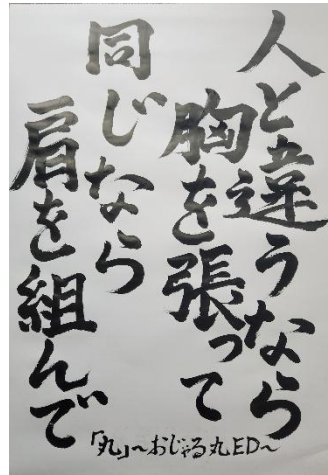 人と違うなら
胸を張って
同じなら
肩を組んで
「丸」〜おじゃる丸ED〜